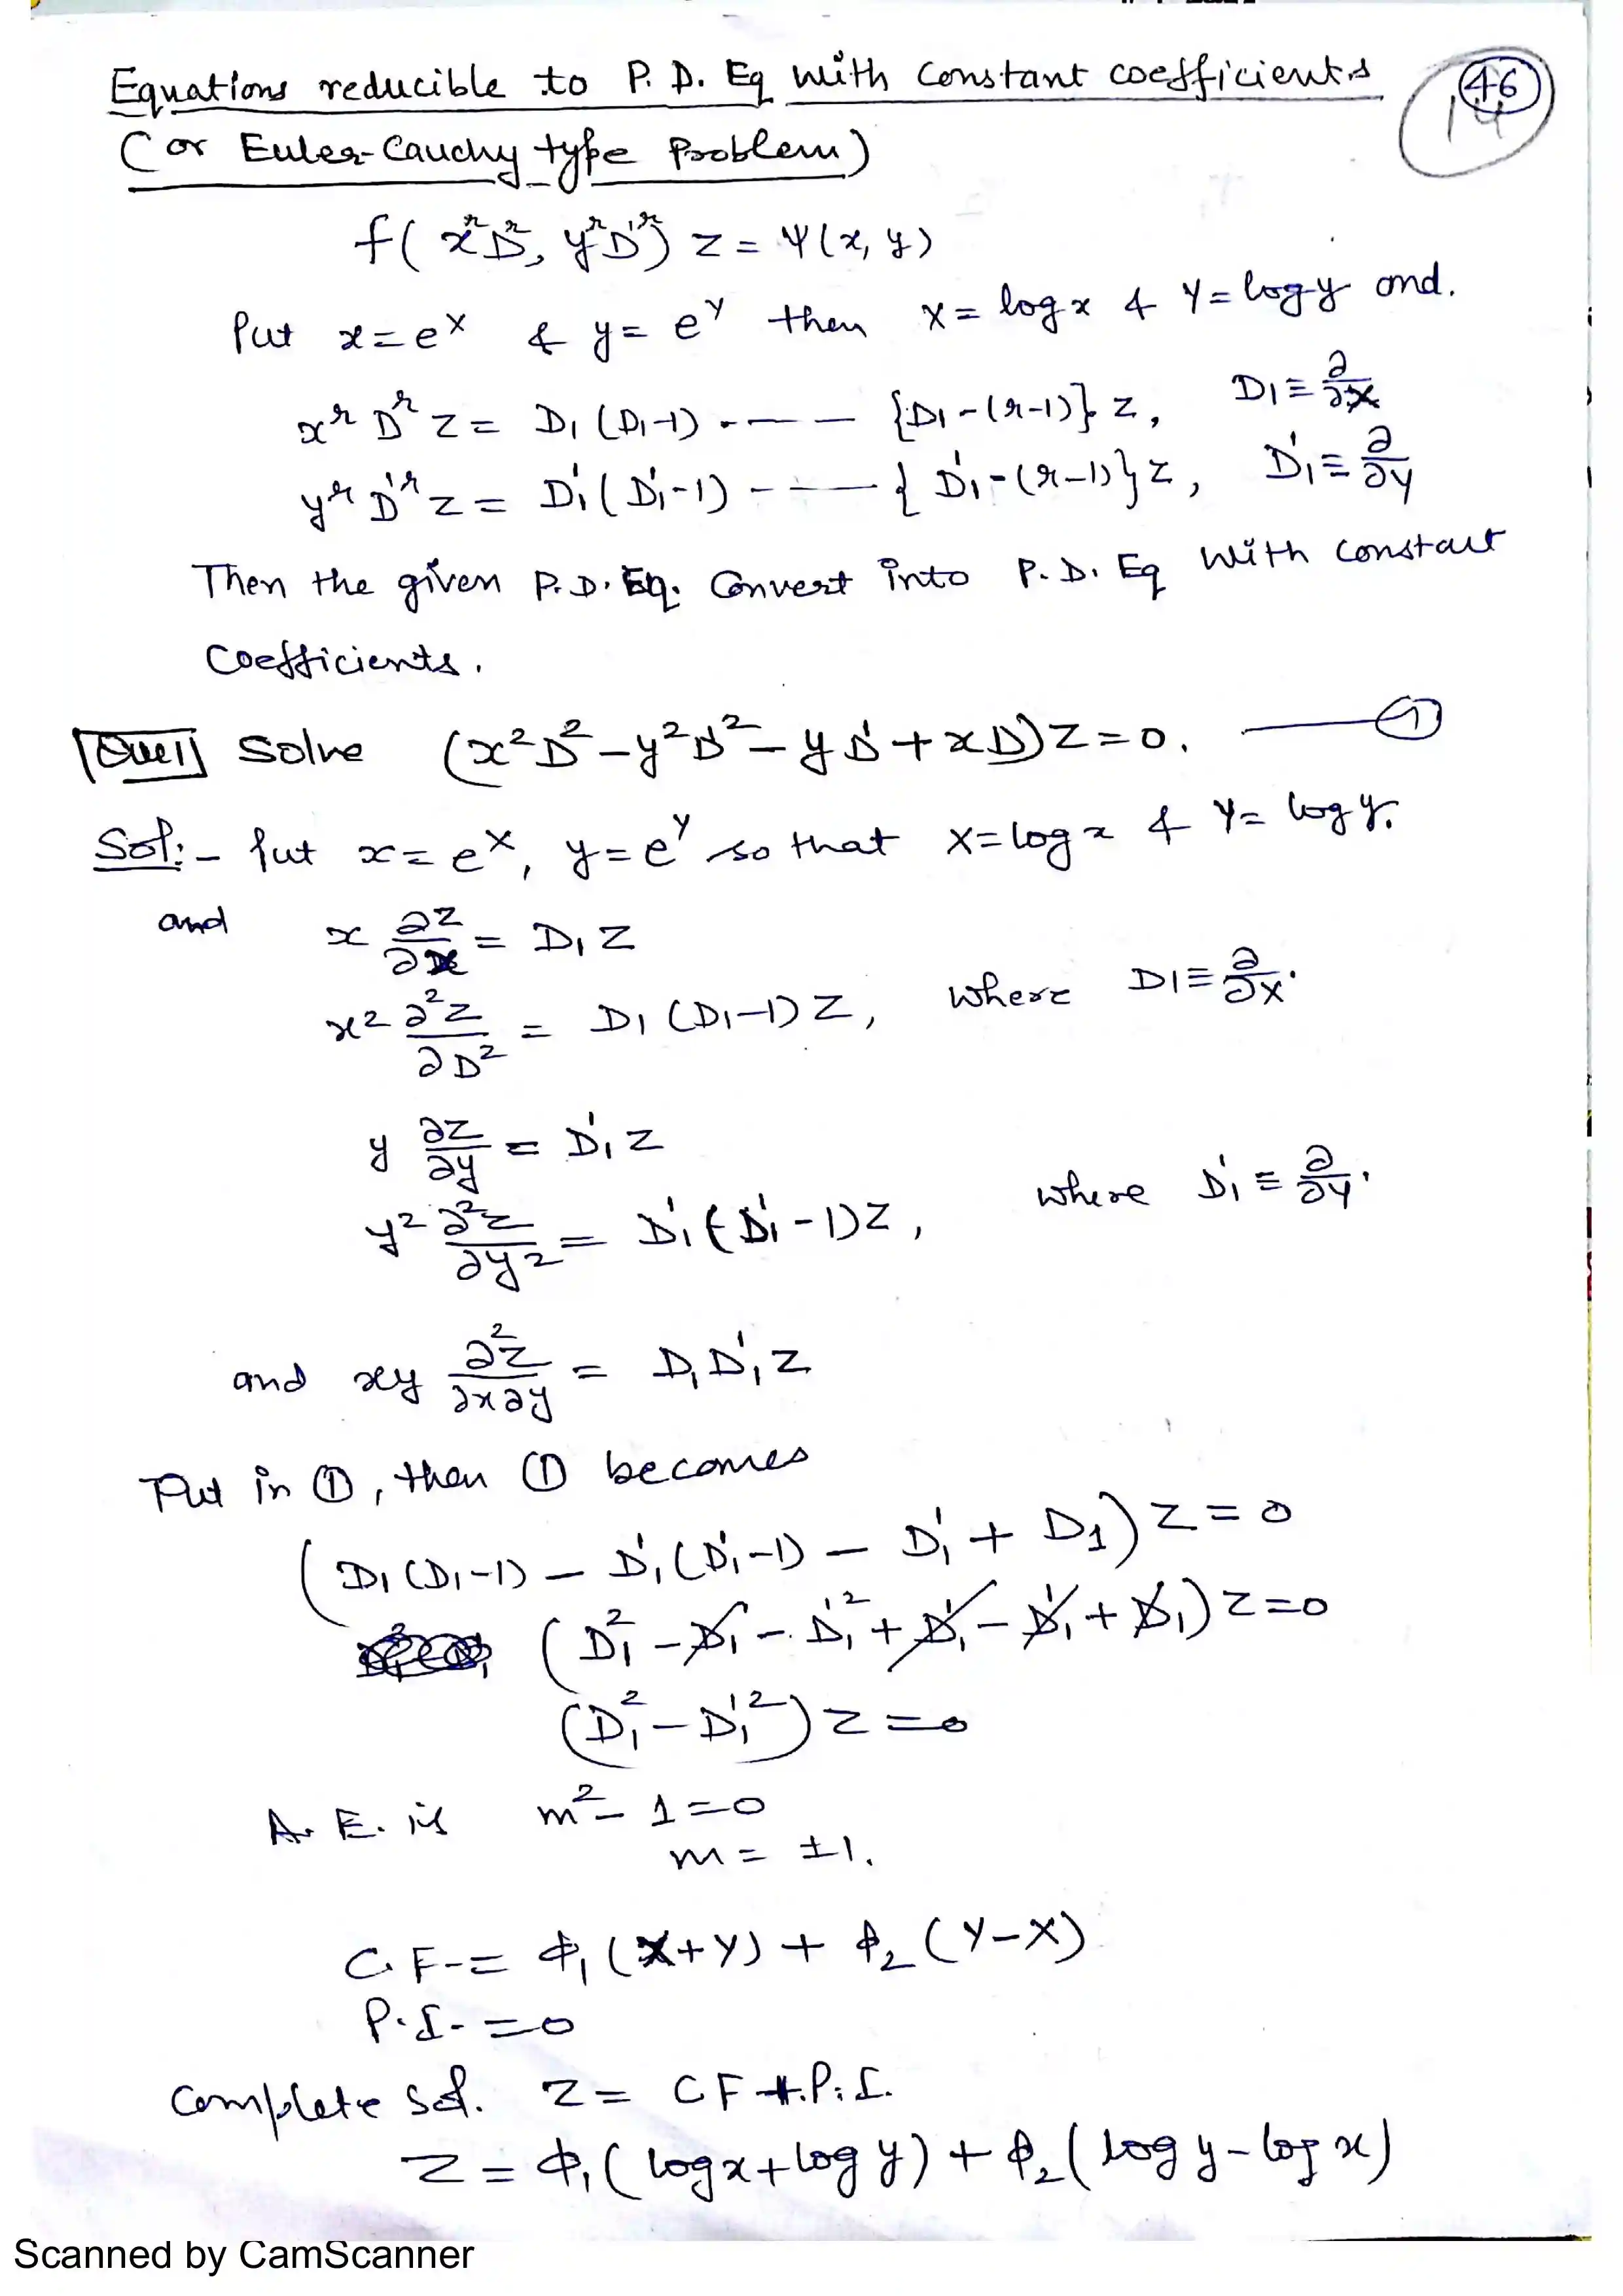 Equations reducible to P. D. Eq with constant coefficients
46
14
(or Euler-Cauchy type Problem)
f( x^r D^r, y^r D'^r) z = Ψ(x, y)
Put x = e^X & y = e^Y then X = log x & Y = log y and.
x^r D^r z = D₁ (D₁-1) ---- {D₁-(r-1)} z, D₁ ≡ ∂/∂X
y^r D'^r z = D'₁ (D'₁-1) ---- {D'₁-(r-1)} z, D'₁ ≡ ∂/∂Y
Then the given P.D. Eq. Convert into P.D. Eq with constant
Coefficients.
Que 1 Solve (x²D² - y²D'² - yD' + xD) z = 0. —— ①
Sol:- Put x = e^X, y = e^Y so that X = log x & Y = log y.
and x ∂z/∂x = D₁ z
x² ∂²z/∂D² = D₁ (D₁-1) z, where D₁ ≡ ∂/∂X.
y ∂z/∂y = D'₁ z
y² ∂²z/∂y² = D'₁ (D'₁-1) z, where D'₁ ≡ ∂/∂Y.
and xy ∂²z/∂x∂y = D₁ D'₁ z
Put in ①, then ① becomes
(D₁ (D₁-1) - D'₁ (D'₁-1) - D'₁ + D₁) z = 0
(D₁² - D₁ - D'₁² + D'₁ - D'₁ + D₁) z = 0
(D₁² - D'₁²) z = 0
A. E. is m² - 1 = 0
m = ±1.
C.F. = Φ₁ (X+Y) + Φ₂ (Y-X)
P.I. = 0
Complete sol. z = CF + P.I.
z = Φ₁ (log x + log y) + Φ₂ (log y - log x)
Scanned by CamScanner